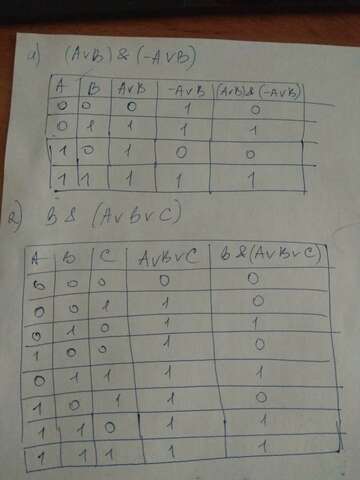 а) (A∨B) & (-A∨B)
A B A∨B -A∨B (A∨B)&(-A∨B)
0 0 0 1 0
0 1 1 1 1
1 0 1 0 0
1 1 1 1 1
2) B & (A∨B∨C)
A B C A∨B∨C B&(A∨B∨C)
0 0 0 0 0
0 0 1 1 0
0 1 0 1 1
1 0 0 1 0
0 1 1 1 1
1 0 1 1 0
1 1 0 1 1
1 1 1 1 1